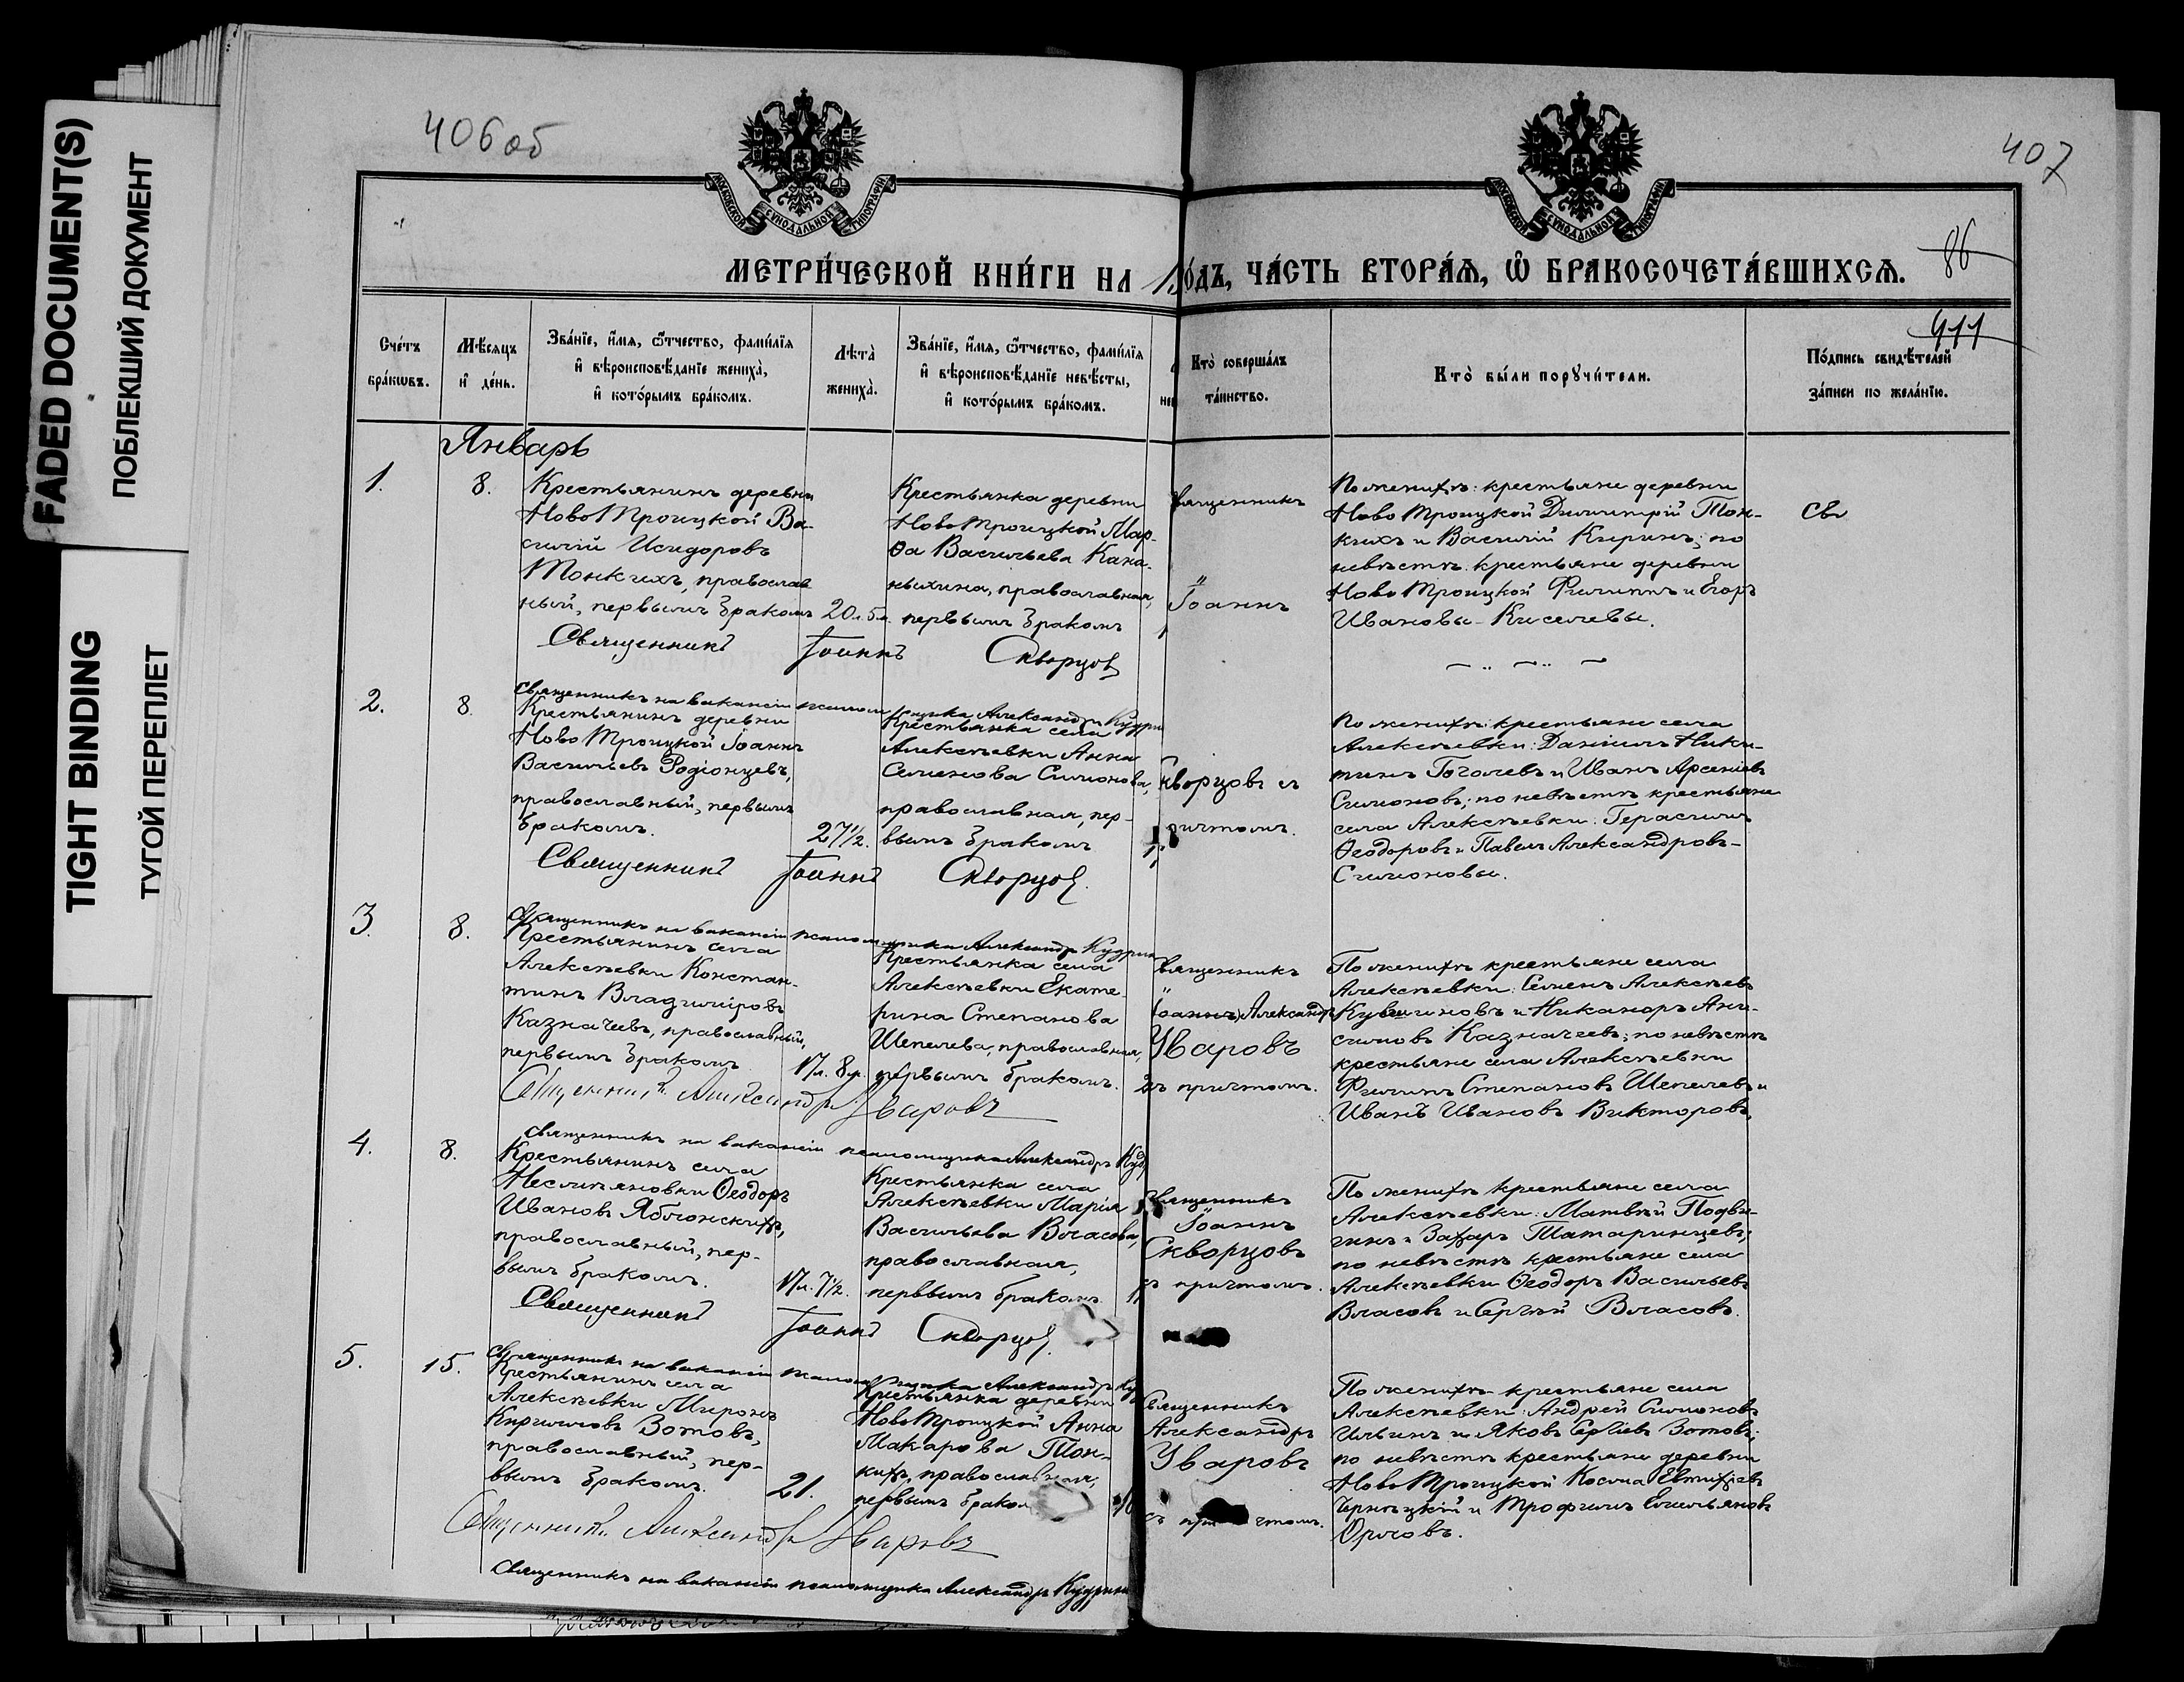 FADED DOCUMENT(S)
ПОБЛЕКШИЙ ДОКУМЕНТ
TIGHT BINDING
ТУГОЙ ПЕРЕПЛЕТ
406 об
407
МОСКОВСКОЙ СѴНОДАЛЬНОЙ ТИПОГРАФІИ
МОСКОВСКОЙ СѴНОДАЛЬНОЙ ТИПОГРАФІИ
86
МЕТРИ́ЧЕСКОЙ КНИ́ГИ НА 1 ГО́ДЪ, ЧА́СТЬ ВТОРА́Ѧ, Ѽ БРАКОСОЧЕТА́ВШИХСѦ.
411
Сче́тъ бра́кѡвъ.
Мѣ́сѧцъ и҆ де́нь.
Зва́нїе, и҆́мѧ, ѻ҆́тчество, фамилїѧ
и҆ вѣроисповѣ́данїе жениха̀,
и҆ кото́рымъ бра́комъ.
Лѣта̀ жениха̀.
Зва́нїе, и҆́мѧ, ѻ҆́тчество, фамилїѧ
и҆ вѣроисповѣ́данїе невѣ́сты,
и҆ кото́рымъ бра́комъ.
Кто̀ соверша́лъ та́инство.
Кто̀ бы́ли порꙋчи́тели.
По́дпись свидѣ́телей за́писи по жела́нїю.
Январь
1.
8.
Крестьянинъ деревни
Ново Троицкой Ва-
силій Исидоровъ
Тонкихъ, православ
ный, первымъ бракомъ
20 л. 5 м.
Крестьянка деревни
Ново Троицкой Мар-
ѳа Васильева Кана-
ныхина, православная,
первымъ бракомъ
Священникъ
Іоаннъ
По женихѣ: крестьяне деревни
Ново Троицкой Димитрій Тон-
кихъ и Василій Киринъ; по
невѣстѣ: крестьяне деревни
Ново Троицкой Филиппъ и Егоръ
Ивановы-Киселевы.
Св
Священникъ Іоаннъ Скворцов
Священникъ на вакансіи псаломщика Александръ Кудрин
2.
8.
Крестьянинъ деревни
Ново Троицкой Іоаннъ
Васильевъ Родіонцевъ,
православный, первымъ
бракомъ.
27 1/2.
Крестьянка села
Алексѣевки Анна
Семенова Симонова,
православная, пер-
вымъ бракомъ
Скворцовъ съ
причтомъ.
По женихѣ: крестьяне села
Алексѣевки: Даніилъ Ники-
тинъ Гоголевъ и Иванъ Арсеніевъ
Симоновъ; по невѣстѣ крестьяне
села Алексѣевки: Герасимъ
Ѳеодоровъ и Павелъ Александровъ-
Симоновы.
Священникъ Іоаннъ Скворцов.
Священникъ на вакансіи псаломщика Александръ Кудрин
3.
8.
Крестьянинъ села
Алексѣевки Констан-
тинъ Владиміровъ
Казначеевъ, православный,
первымъ бракомъ
17 л. 8 м.
Крестьянка села
Алексѣевки Екате-
рина Степанова
Шепелева, православная,
первымъ бракомъ.
Священникъ
Іоаннъ Александръ
Уваровъ
съ причтомъ.
По женихѣ крестьяне села
Алексѣевки: Семенъ Алексѣевъ
Кувшиновъ и Никаноръ Ани-
симовъ Казначеевъ; по невѣстѣ
крестьяне села Алексѣевки
Филиппъ Степановъ Шепелевъ и
Иванъ Ивановъ Викторовъ
Священникъ Александръ Уваровъ
Священникъ на вакансіи псаломщика Александръ Куд
4.
8.
Крестьянинъ села
Несмѣяновки Ѳеодоръ
Ивановъ Яблонскихъ,
православный, пер-
вымъ бракомъ.
17 л. 7 1/2.
Крестьянка села
Алексѣевки Марія
Васильева Власова,
православная,
первымъ бракомъ
Священникъ
Іоаннъ
Скворцовъ
съ причтомъ.
По женихѣ крестьяне села
Алексѣевки: Матвѣй Подви-
гинъ и Захаръ Татаринцевъ;
по невѣстѣ крестьяне села
Алексѣевки Ѳеодоръ Васильевъ
Власовъ и Сергѣй Власовъ.
Священникъ Іоаннъ Скворцов.
Священникъ на вакансіи псаломщика Александръ Ку
5.
15.
Крестьянинъ села
Алексѣевки Миронъ
Кирилловъ Зотовъ,
православный, пер-
вымъ бракомъ.
21.
Крестьянка деревни
Ново Троицкой Анна
Макарова Тон-
кихъ, православная,
первымъ браком
Священникъ
Александръ
Уваровъ
съ причтомъ.
По женихѣ крестьяне села
Алексѣевки: Андрей Симоновъ
Ильинъ и Яковъ Сергѣевъ Зотовъ;
по невѣстѣ крестьяне деревни
Ново Троицкой Косма Евтихіевъ
Чернѣцкій и Трофимъ Емельяновъ
Орловъ.
Священникъ Александръ Уваровъ
Священникъ на вакансіи псаломщика Александръ Кудрин